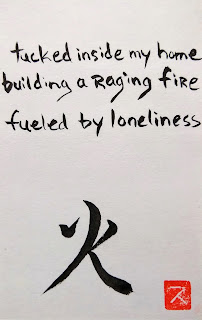 tucked inside my home
building a Raging fiRe
fueled by loneliness
火